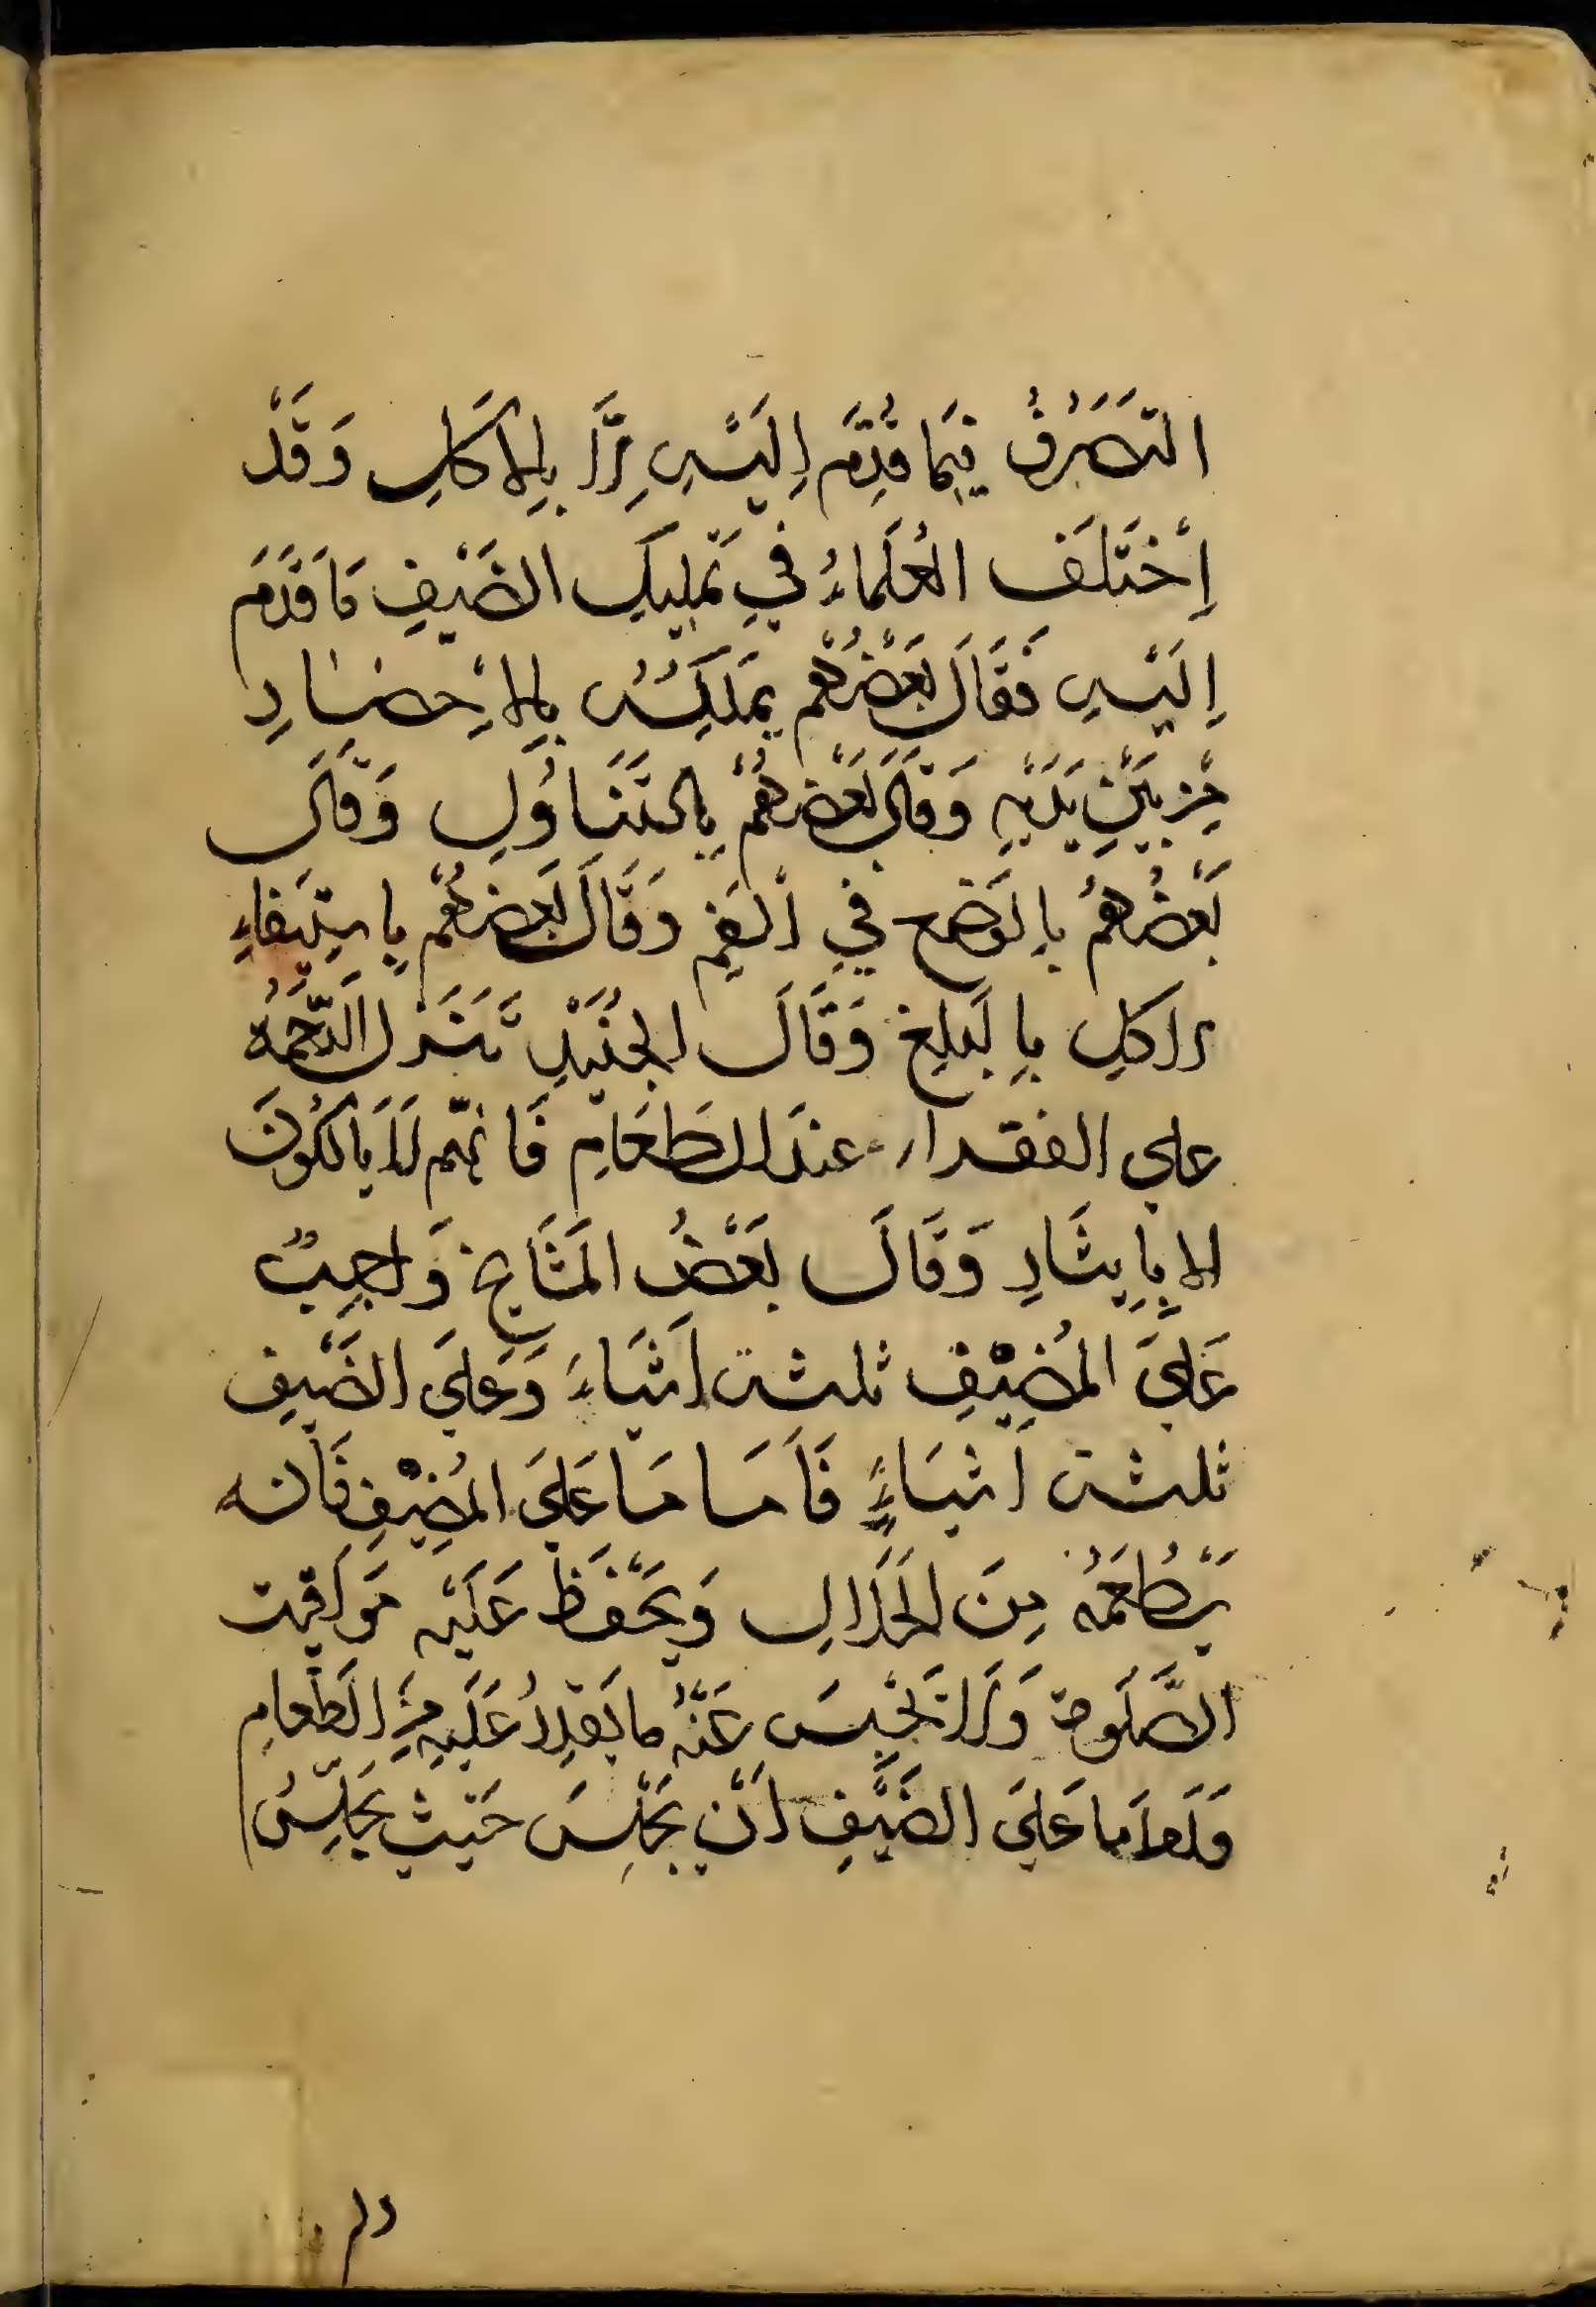 التَصَرُفُ فِيمَا قُدِّمَ اِلَيْهِ اِلَّا بِالاَكلِ وَقَدْ
اِخْتَلَفَ العُلَمَاءُ فِي تَمْلِيكِ الضَيْفِ مَا قَدَّمَ
اِلَيْهِ فَقَالَ بَعْضُهُم يَملِكُهُ بِالاِحضَارِ
مِنْ بَيْنِ يَدَيْهِ وَقَالَ بَعْضُهُمْ بِالتَّنَاوُلِ وَقَالَ
بَعْضُهُمُ بِالوَضعِ فِي اَلفَمِ وَقَالَ بَعضُهُم بِاستِيفَاءِ
الاَكلِ بِالبَلعِ وَقَالَ الجُنَيْدِ تَنَزل الرَّحْمَهُ
علي الفقراء عندَ الطَعَامِ فَانهم لاَ يَاكلُونَ
الا بِايثَارِ وَقَالَ بَعْضُ المَشَايخ وَاجِبٌ
عَليَ المُضِيْفِ ثلثة اَشيَاءَ وَعَليَ الضَيْفِ
ثلثة اَشيَاءٍ فَاَمَا مَا عَليَ المُضِيْفِ فَانه
يَطْعُمَهُ مِنَ الحَلَالِ وَيَحْفَظ عَلَيْهِ مَوَاقيت
الصَّلَوة وَلَا يَحْبِسَ عَنْهُ مَا يَقْدِرُ عَلَيهِ مِنَ الطَعَامِ
وَاَما مَا عَليَ الضَيْفِ اَنْ يَجْلِسَ حَيْث يَجْلِسُ